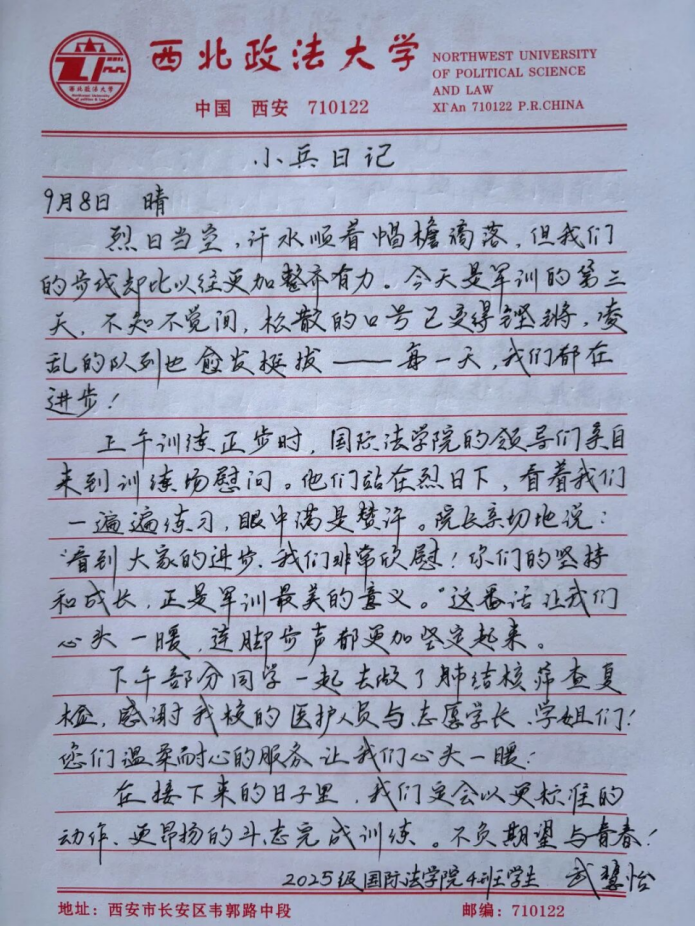 西北政法大学
NORTHWEST UNIVERSITY
OF POLITICAL SCIENCE
AND LAW
XI'An 710122 P.R.CHINA
中国 西安 710122
西北政法大学
小兵日记
9月8日 晴
烈日当空,汗水顺着帽檐滴落,但我们
的步伐却比以往更加整齐有力。今天是军训的第三
天,不知不觉间,松散的口号已变得铿锵,凌
乱的队列也愈发挺拔——每一天,我们都在
进步!
上午训练正步时,国际法学院的领导们亲自
来到训练场慰问。他们站在烈日下,看着我们
一遍遍练习,眼中满是赞许。院长亲切地说:
“看到大家的进步,我们非常欣慰!你们的坚持
和成长,正是军训最美的意义。”这番话让我们
心头一暖,连脚步声都更加坚定起来。
下午部分同学一起去做了肺结核筛查复
检,感谢我校的医护人员与志愿学长、学姐们!
您们温柔耐心的服务让我们心头一暖!
在接下来的日子里,我们定会以更标准的
动作、更昂扬的斗志完成训练。不负期望与青春!
2025级国际法学院4班学生 武碧怡
地址:西安市长安区韦郭路中段 邮编:710122